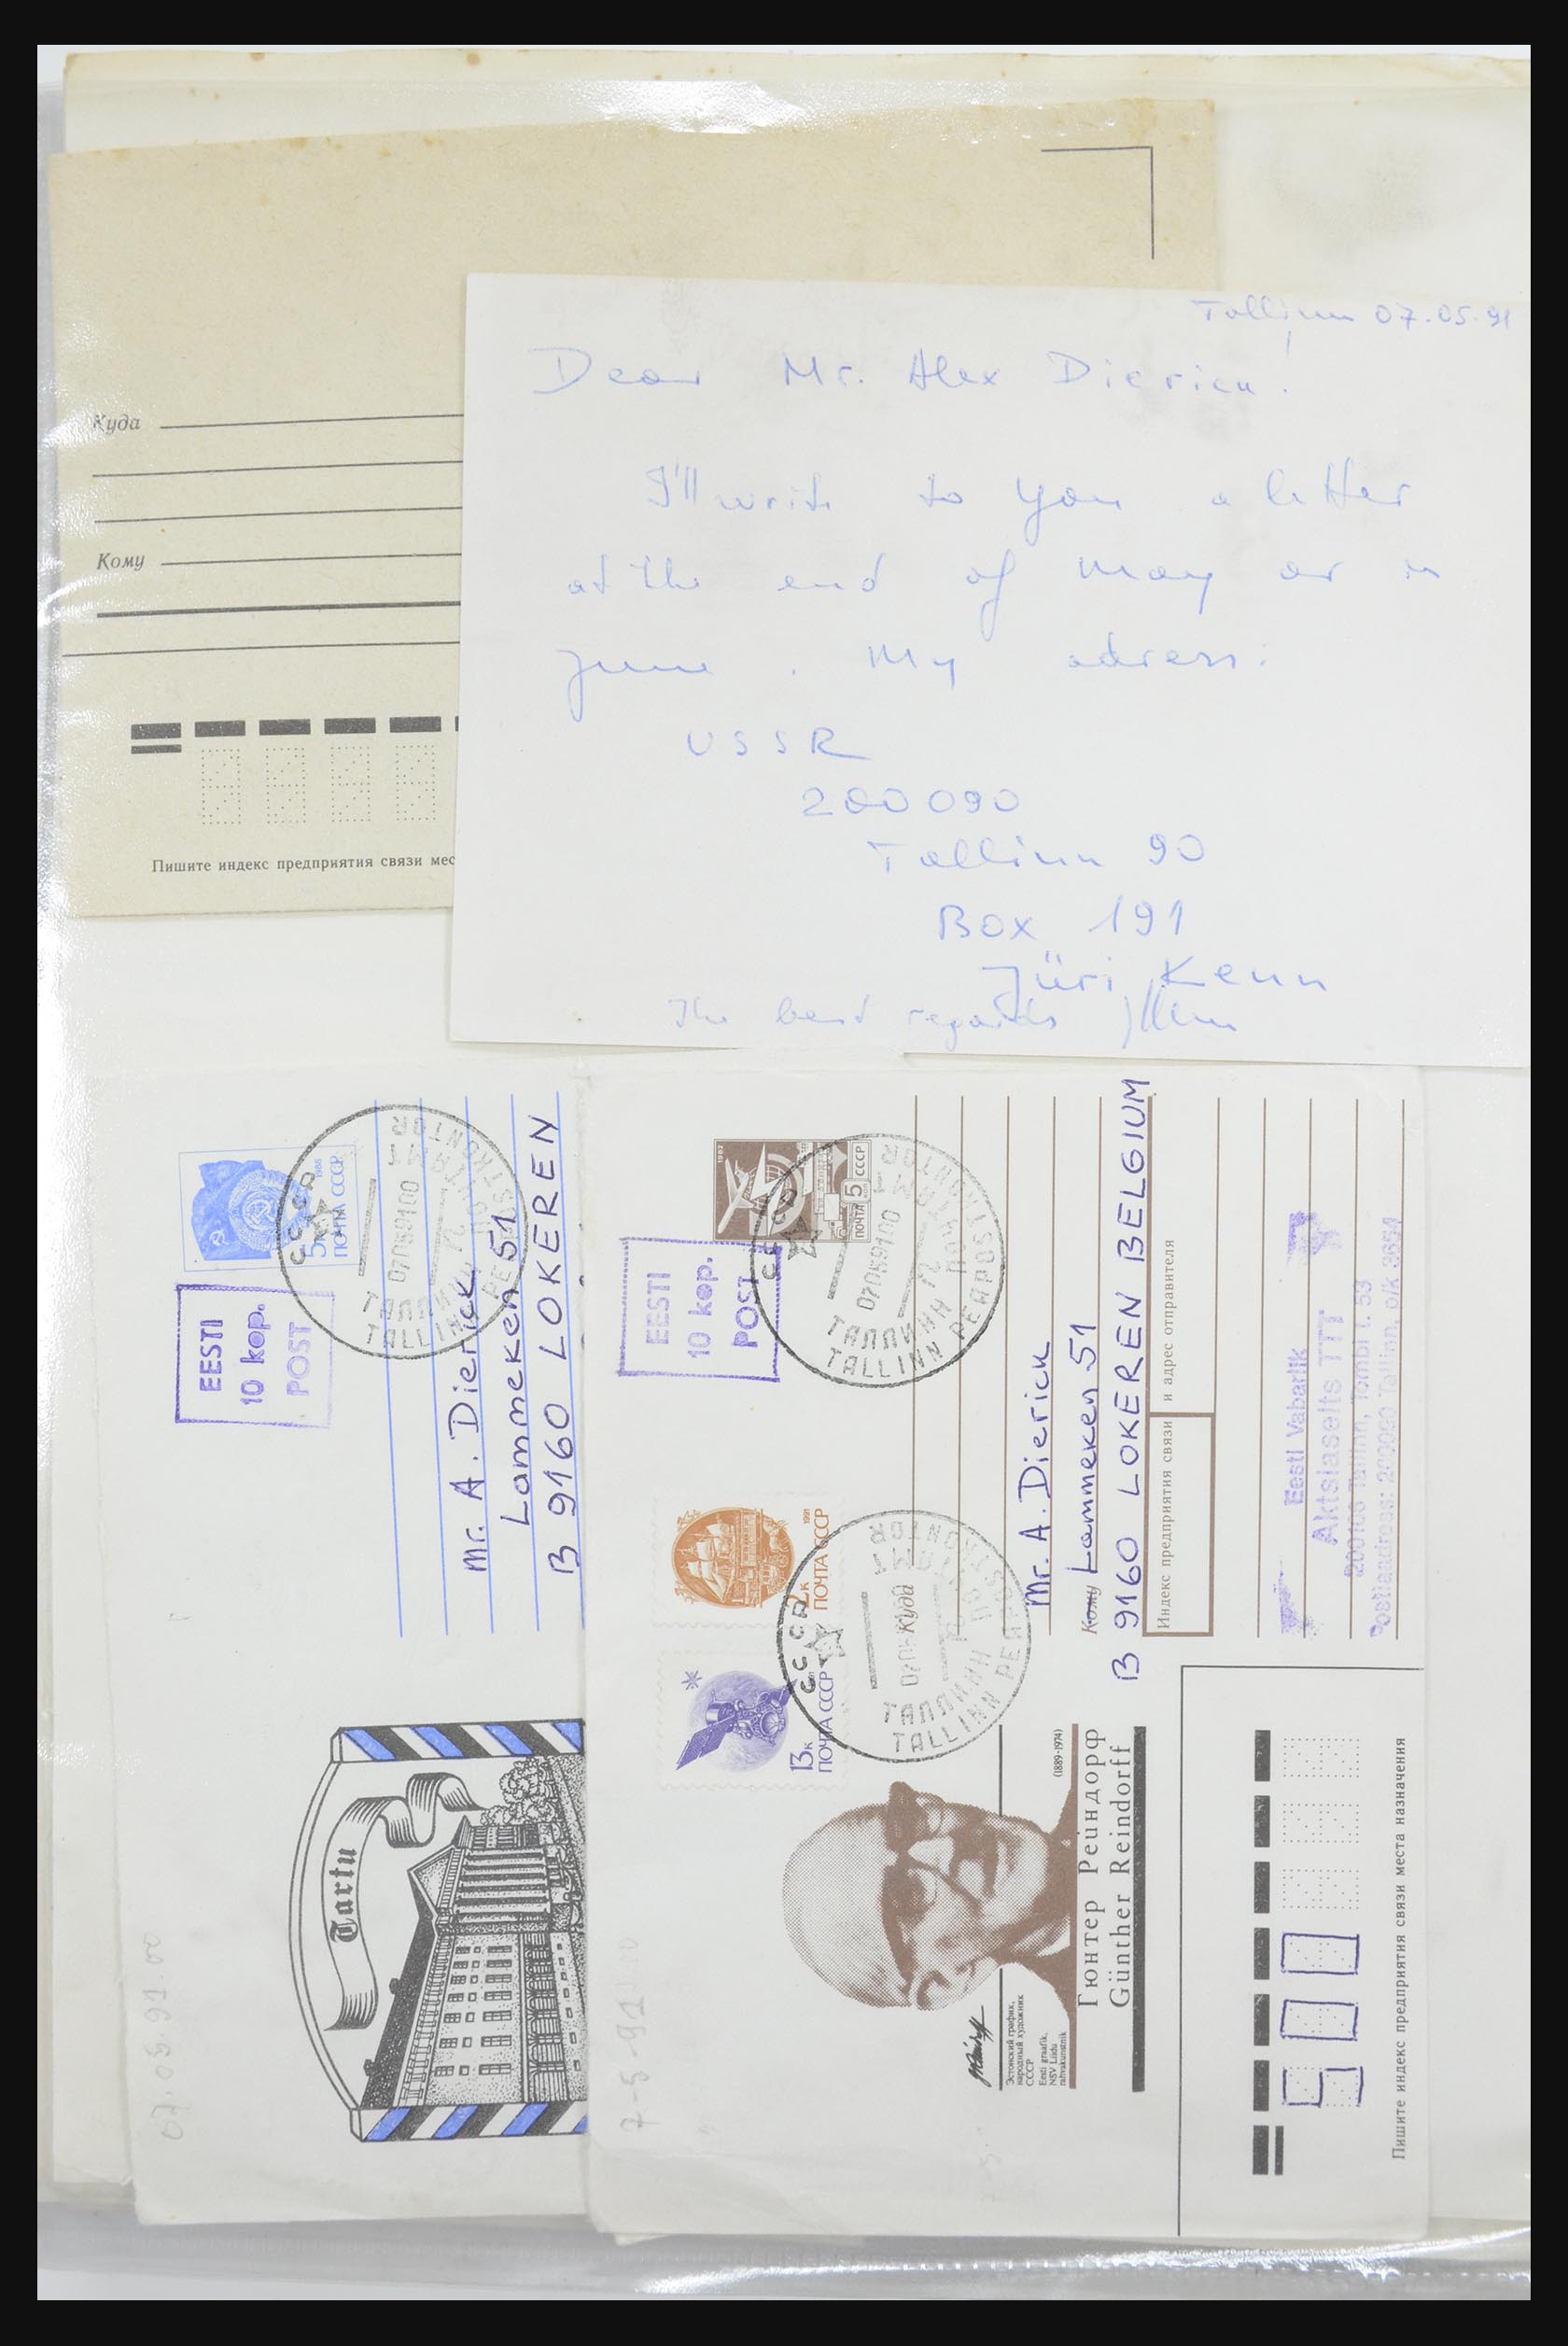 Куда
Кому
Пишите индекс предприятия связи мес
Tallinn 07.05.91
Dear Mr. Alex Dierick!
I'll write to you a letter
at the end of may or in
june. My adress:
USSR
200090
Tallinn 90
Box 191
Jüri Kenn
The best regards
5к
ПОЧТА СССР
1988
EESTI
10 kop.
POST
СССР
07059100
ТАЛЛИНН
TALLINN PEAPOSTKONTOR
Mr. A. Dierick
Lammeken 51
B 9160 LOKEREN
Tartu
07.05.91.00
1982
ПОЧТА 5 СССР
EESTI
10 kop.
POST
СССР
07059100
ТАЛЛИНН
TALLINN PEAPOSTKONTOR
1991
2к
ПОЧТА СССР
13к
ПОЧТА СССР
СССР
ТАЛЛИНН
TALLINN
Куда
Mr. A. Dierick
Кому Lammeken 51
B 9160 LOKEREN BELGIUM
Индекс предприятия связи и адрес отправителя
Eesti Vabariik
Aktsiaselts TTT
200100 Tallinn, Tombi t. 53
Postiaadress: 200090 Tallinn, p/k 3654
Эстонский график,
народный художник
СССР
Eesti graafik,
NSV Liidu
rahvakunstnik
(1889-1974)
Гюнтер Рейндорф
Günther Reindorff
7-5-91
500
Пишите индекс предприятия связи места назначения